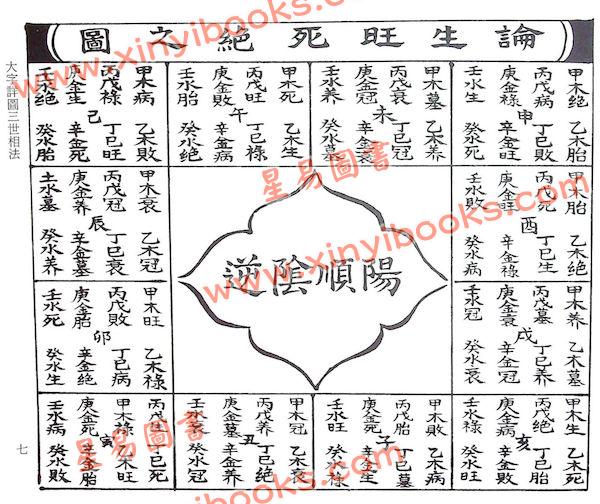 論生旺死絕之圖
大字詳圖三世相法
七
甲木絕 乙木胎
丙戊病 丁巳敗
申
庚金祿 辛金旺
壬水生 癸水死
甲木墓 乙木養
丙戊衰 丁巳冠
未
庚金冠 辛金衰
壬水養 癸水墓
甲木死 乙木生
丙戊旺 丁巳祿
午
庚金敗 辛金病
壬水胎 癸水絕
甲木病 乙木敗
丙戊祿 丁巳旺
己
庚金生 辛金死
壬水絕 癸水胎
甲木胎 乙木絕
丙戊死 丁巳生
酉
庚金旺 辛金祿
壬水敗 癸水病
陽順陰逆
甲木衰 乙木冠
丙戊冠 丁巳衰
辰
庚金養 辛金墓
土水墓 癸水養
甲木養 乙木墓
丙戊墓 丁巳養
戌
庚金衰 辛金冠
壬水冠 癸水衰
甲木旺 乙木祿
丙戊敗 丁巳病
卯
庚金胎 辛金絕
壬水死 癸水生
甲木生 乙木死
丙戊絕 丁巳胎
亥
庚金病 辛金敗
壬水祿 癸水旺
甲木敗 乙木病
丙戊胎 丁巳墓
子
庚金死 辛金生
壬水旺 癸水祿
甲木冠 乙木衰
丙戊養 丁巳絕
丑
庚金墓 辛金養
壬水衰 癸水冠
丙戊生 丁巳死
甲木祿 乙木旺
寅
庚金死 辛金胎
壬水病 癸水敗
www.xinyibooks.com
www.xinyibooks.com
www.xinyibooks.com
星易圖書
星易圖書